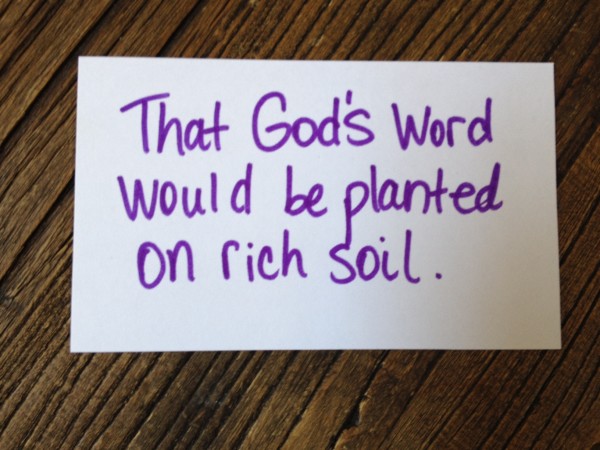 That God's Word
would be planted
on rich soil.